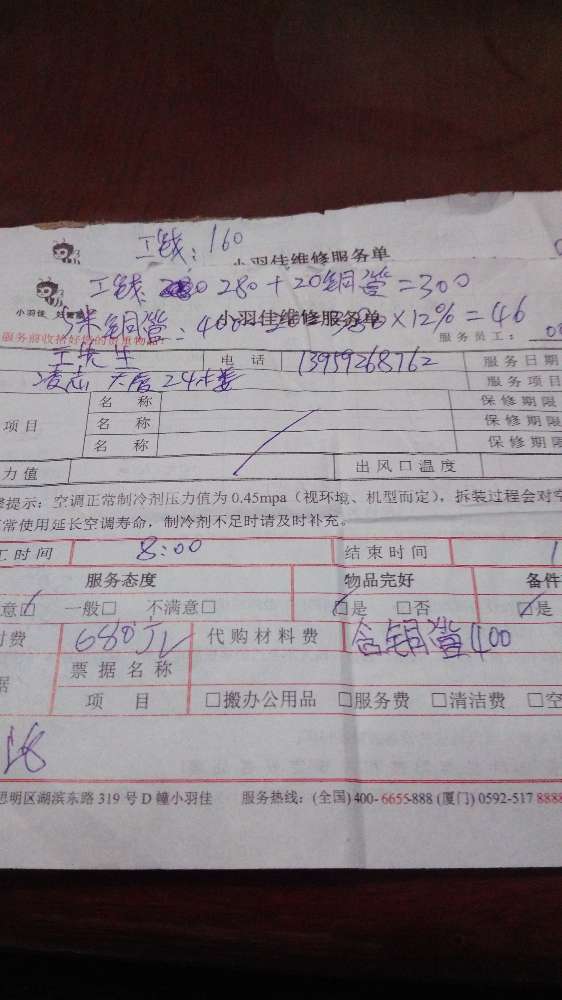 工钱：160
小羽佳维修服务单
工钱 280+20铜管=300
小羽佳 小羽佳维修服务单
铜管：400 ×12%=46
服务员工：
王先生 电 话 13959268762 服务日期
24 服务项目
项目 名 称 保修期限
名 称 保修期限
名 称 保修期限
力值 出风口温度
提示：空调正常制冷剂压力值为0.45mpa（视环境、机型而定），拆装过程会对空
常使用延长空调寿命，制冷剂不足时请及时补充。
工时间 8:00 结束时间 1
服务态度 物品完好 备件
意☑ 一般□ 不满意□ ☑是 □否 ☑是
付费 680元 代购材料费 含铜管400
据 票据名称
项 目 □搬办公用品 □服务费 □清洁费 □空
思明区湖滨东路 319 号 D 幢小羽佳 服务热线：(全国) 400-6655-888 (厦门) 0592-517 8888